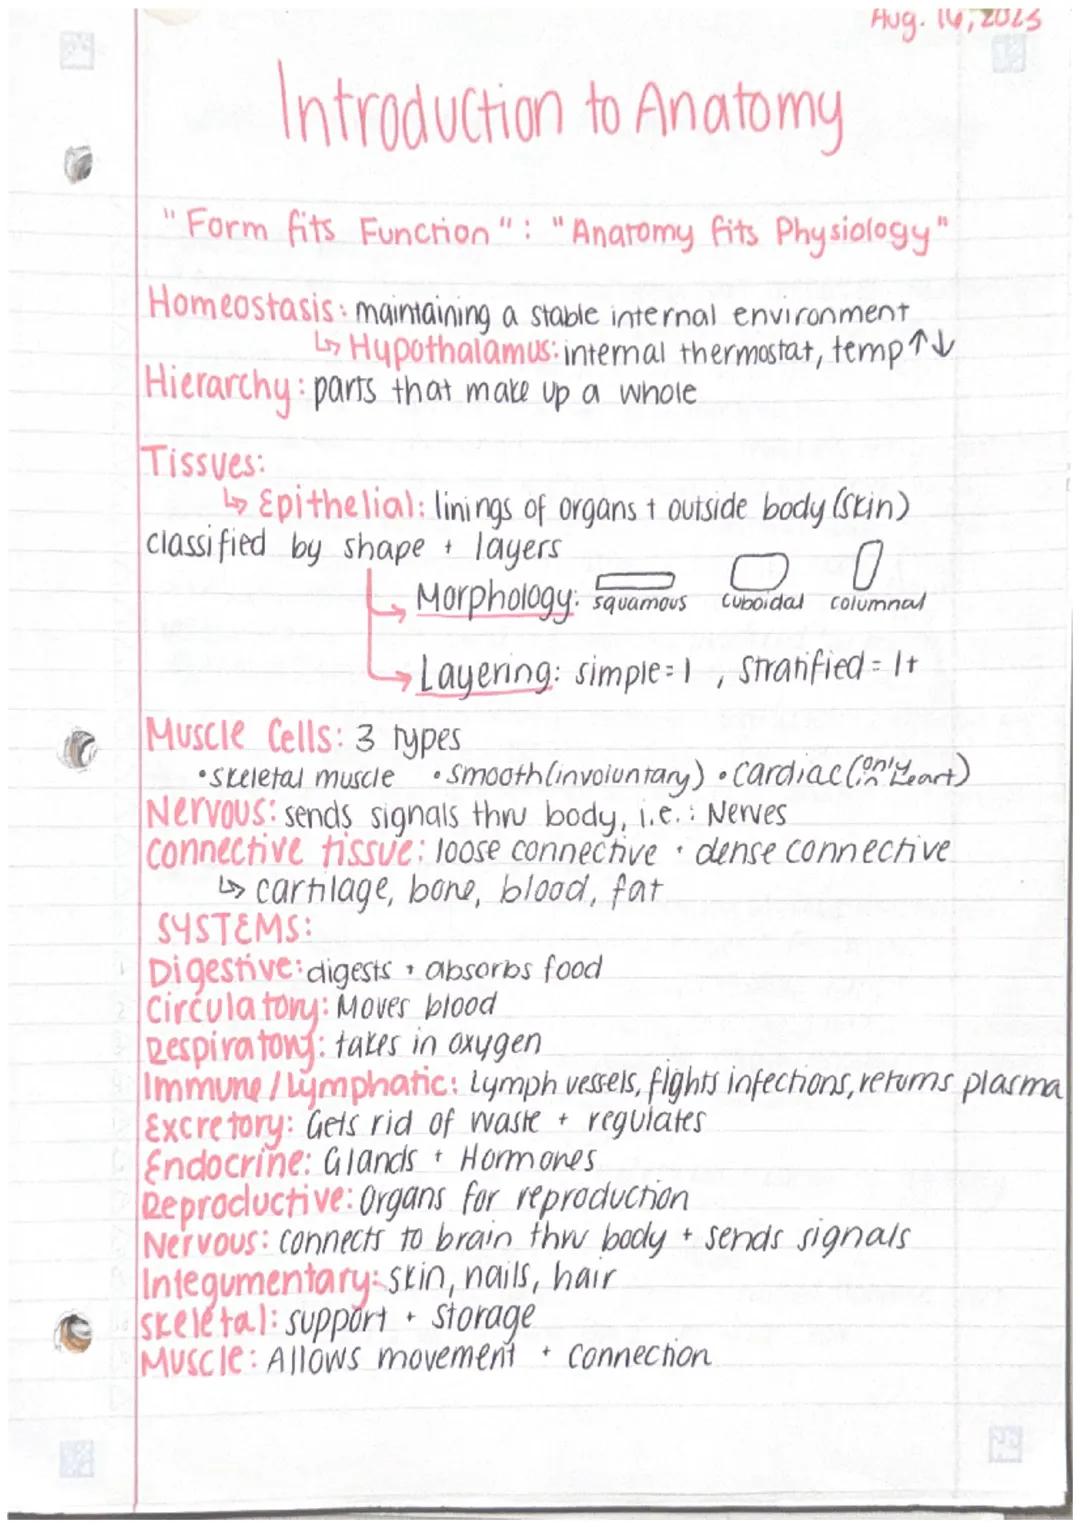 Aug. 16, 2023
Introduction to Anatomy
"Form fits Function": "Anatomy fits Physiology"
Homeostasis: maintaining a stable internal environment
↳ Hypothalamus: internal thermostat, temp ↑↓
Hierarchy: parts that make up a whole
Tissues:
↳ Epithelial: linings of organs + outside body (skin)
classified by shape + layers
Morphology: squamous cuboidal columnal
Layering: simple = 1, stratified = 1+
Muscle Cells: 3 types
• skeletal muscle • smooth (involuntary) • cardiac (only in heart)
Nervous: sends signals thru body, i.e.: Nerves
Connective tissue: loose connective • dense connective
↳ cartilage, bone, blood, fat
SYSTEMS:
Digestive: digests + absorbs food
Circulatory: Moves blood
Respiratory: takes in oxygen
Immune/Lymphatic: Lymph vessels, fights infections, returns plasma
Excretory: Gets rid of waste + regulates
Endocrine: Glands + Hormones
Reproductive: Organs for reproduction
Nervous: connects to brain thru body + sends signals
Integumentary: skin, nails, hair
Skeletal: support + storage
Muscle: Allows movement + connection